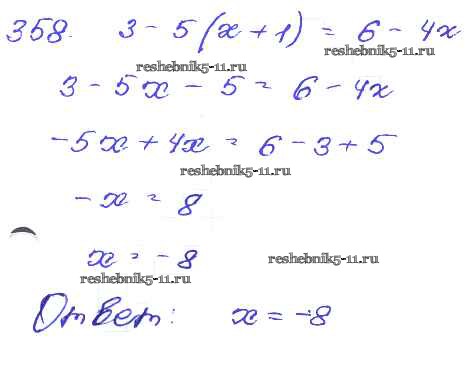 358. 3 - 5(x + 1) = 6 - 4x
reshebnik5-11.ru
reshebnik5-11.ru
3 - 5x - 5 = 6 - 4x
-5x + 4x = 6 - 3 + 5
reshebnik5-11.ru
-x = 8
x = -8
reshebnik5-11.ru
reshebnik5-11.ru
Ответ: x = -8